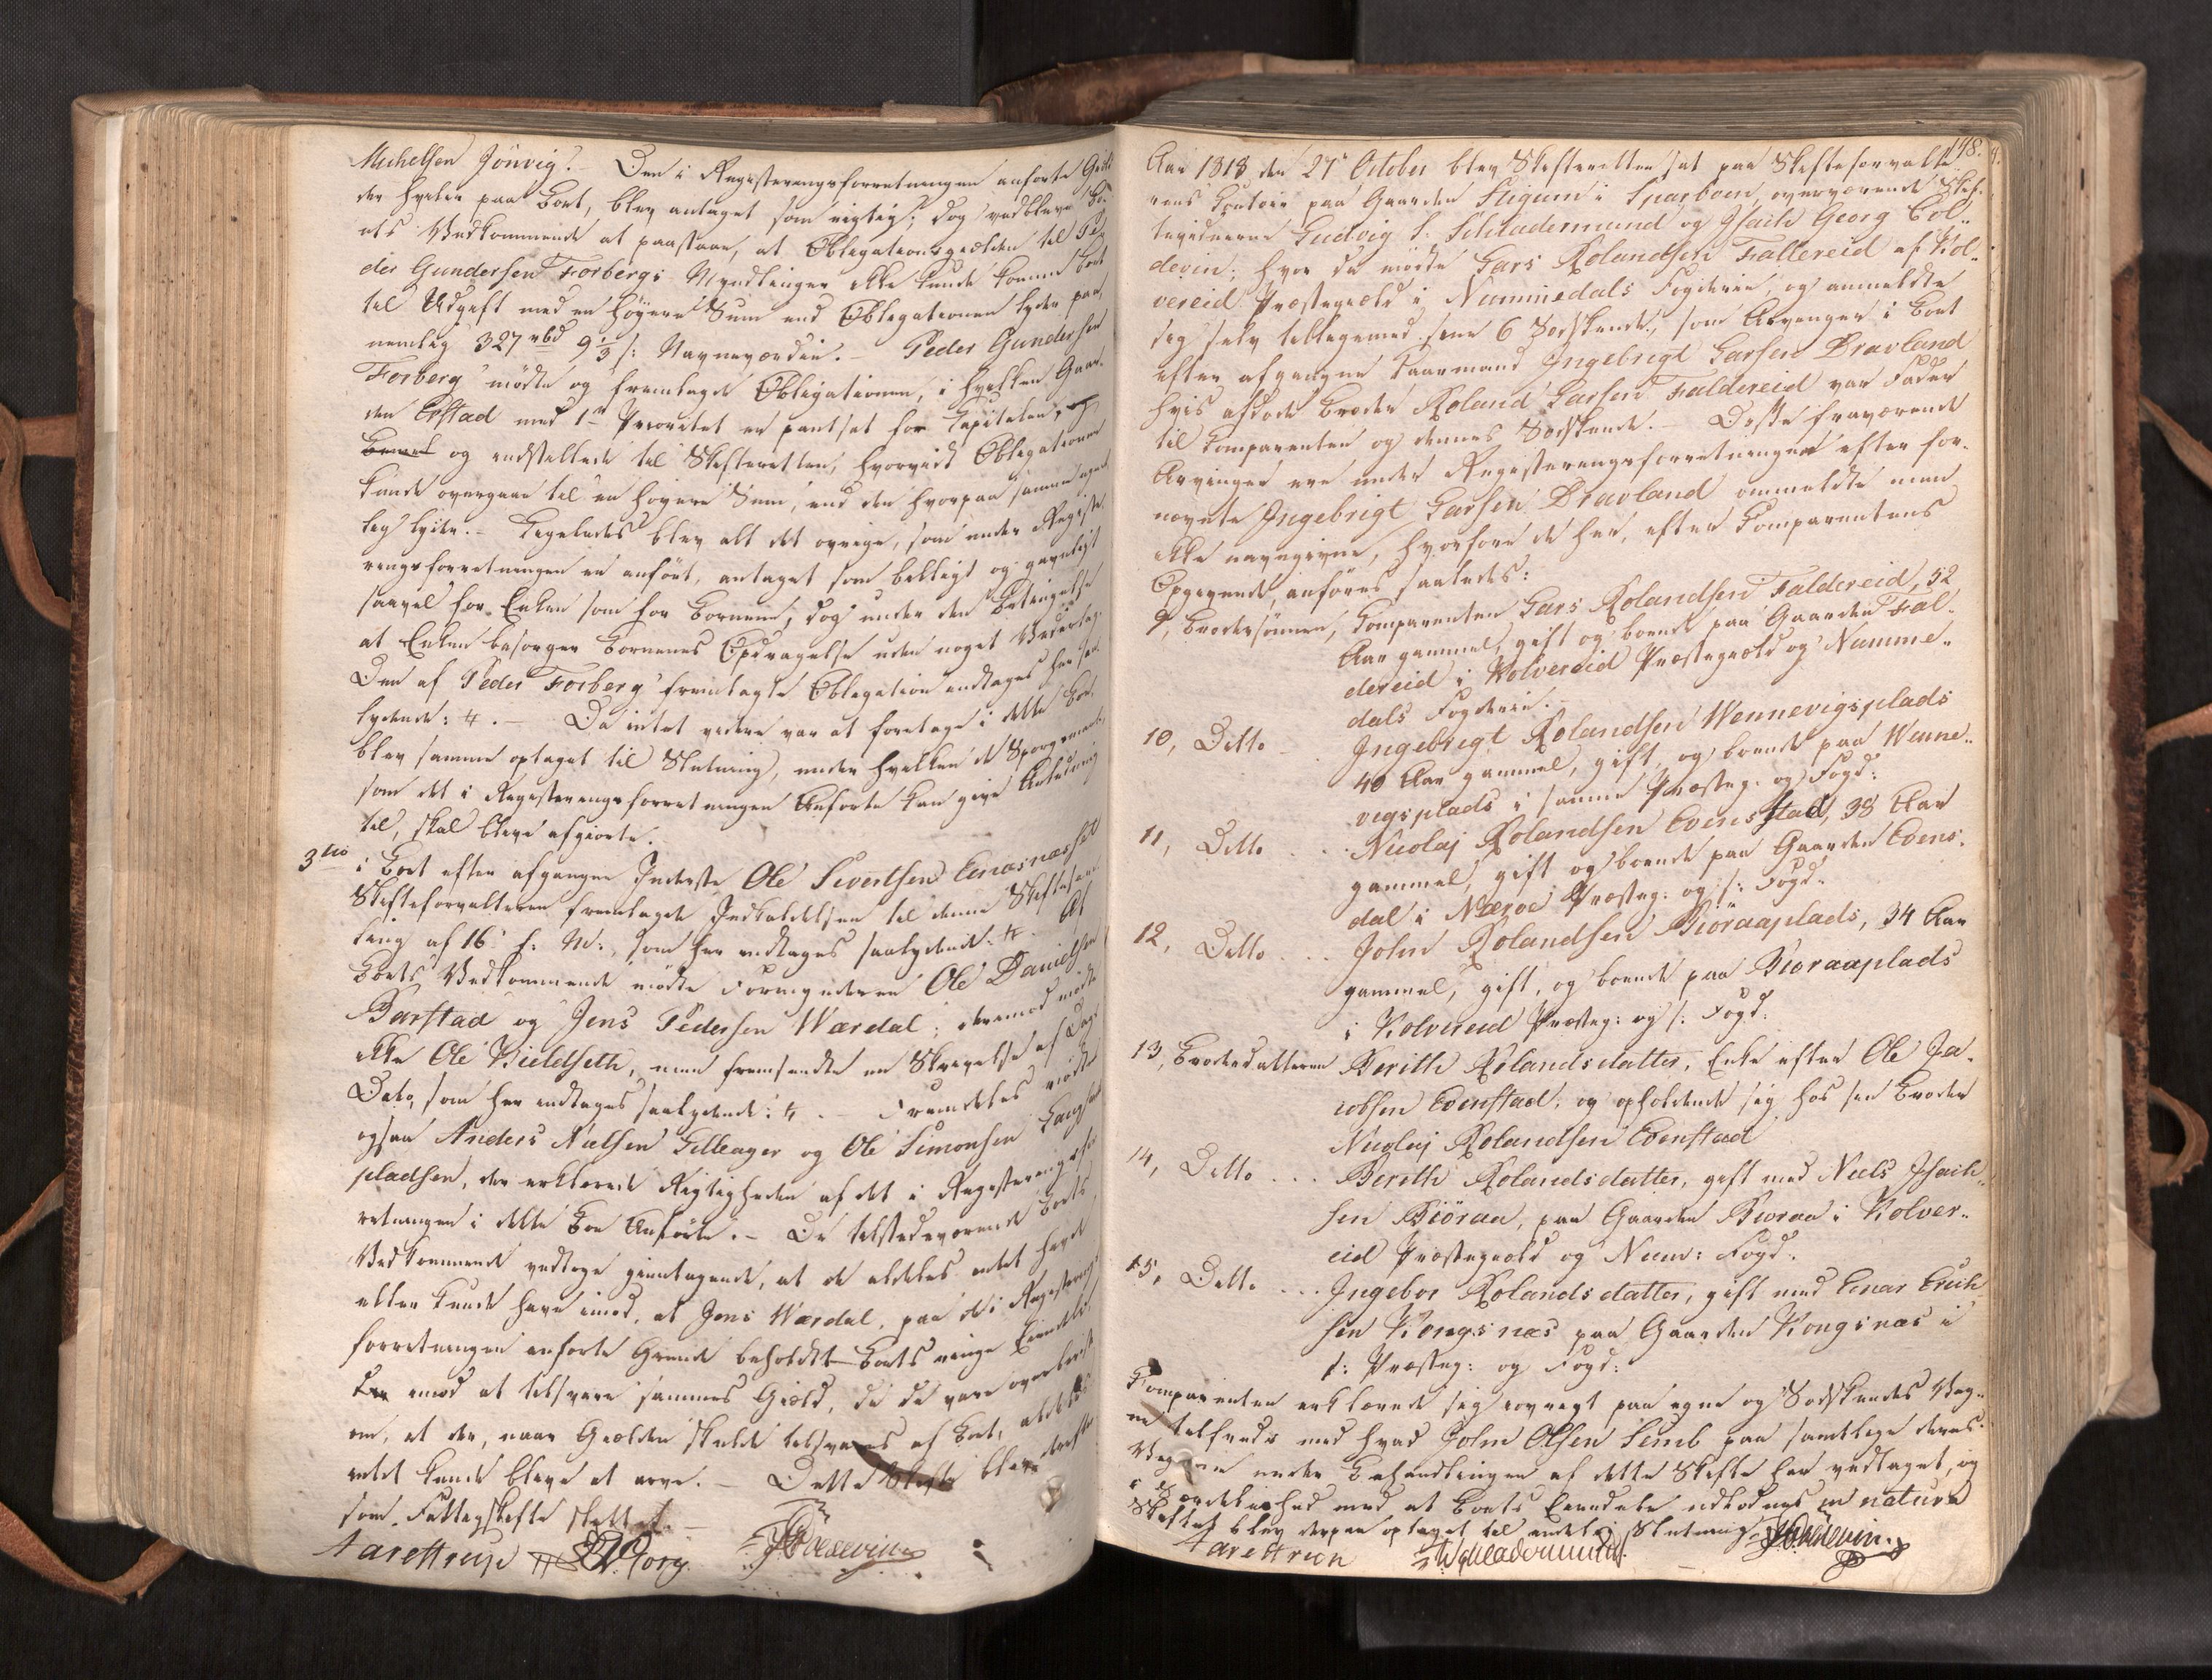 Michelsen Jönvig. – Den i Registeringsforretningen anførte Gield
der hviler paa Boet, blev antaget som rigtig; dog vedbleve Bo-
ets Vedkommende at paastaae, at Obligationsgielden til Pe-
der Gundersen Forbergs Myndlinger ikke kunde komme Boet
til Udgift med en höyere Sum end Obligationen lyder paa,
nemlig 327 rbd 9 1/3 s: Navneværdie. – Peder Gundersen
Forberg mödte og fremlagde Obligationen, i hvilken Gaar-
den Erstad med 1ste Prioritet er pantsat for Capitalen,
og indstillede til Skifteretten, hvorvidt Obligationen
kunde overgaae til en höyere Sum, end den hvorpaa samme egent-
lig lyder. – Ligeledes blev alt det øvrige, som under Registe-
ringsforretningen er anfört, antaget som billigt og gavnligt
saavel for Enken som for Börnene, dog under den Betingelse
at Enken besörger Börnenes Opdragelse uden noget Vederlag.
Den af Peder Forberg fremlagte Obligation indtages her saa
lydende: 4. – Da intet videre var at foretage i dette Boe,
blev samme optaget til Slutning, under hvilken de Spörgsmaale,
som det i Registeringsforretningen Anförte kan give Anledning
til, skal blive afgiorte.
3tio i Boet efter afgangne Inderste Ole Sivertsen Einæsnesset
Skifteforvalteren fremlagde Indkaldelsen til denne Skiftesam-
ling af 16 f: M:, som her indtages saalydende: 4. Af
Boets Vedkommende mödte Formynderen Ole Danielsen
Barstad og Jens Pedersen Wærdal; derimod mödte
ikke Ole Kieldseth, men fremsendte en Skrivelse af Dags
Dato, som her indtages saalydende: 4. – Fremdeles mödte
ogsaa Anders Nielsen Tilleager og Ole Simonsen
pladsen, der erklærede Rigtigheden af det i Registeringsfor-
retningen i dette Boe Anförte. – De tilstedeværende Boets
Vedkommende vedtoge gientagende, at de aldeles intet havde
eller kunde have imod, at Jens Wærdal, paa de i Registerings-
forretningen anförte Grunde beholdt Boets ringe Eiendele,
imod at tilsvare sammes Gield, da de vare overbeviist
om, at der, naar Gielden skulde tilsvares af Boet, aldeles
intet kunde blive at arve. – Dette Skifte blev derfor
som Fattigskifte sluttet. –
Aarettrup
148.
Aar 1818 den 27de October blev Skifteretten sat paa Skifteforvalte-
rens Contoir paa Gaarden Stigum i Sparboen, overværende Skif-
tevidnerne Ludvig L. Schladermund og Isach Georg Col-
devin; hvor da mödte Lars Rolandsen Fallereid af Kol-
vereid Præstegield i Nummedals Fogderie, og anmeldte
sig selv tilligemed sine 6 Södskende, som Arvinger i Boet
efter afgangne Kaarmand Ingebrigt Larsen Bravland
hvis afdöde Broder Roland Larsen Faldereid var Fader
til Comparenten og dennes Södskende. – Disse fraværende
Arvinger ere under Registeringsforretningen efter for-
nævnte Ingebrigt Larsen Bravland ommeldte men
ikke navngivne, hvorfore de her, efter Comparentens
Opgivende, anföres saaledes:
9, Brodersönnen, Comparenten Lars Rolandsen Faldereid, 52
Aar gammel, gift og boende paa Gaarden Fal-
dereid i Kolvereid Præstegield og Numme-
dals Fogderie.
10, Ditto – Ingebrigt Rolandsen Wennevigsplads
40 Aar gammel, gift, og boende paa Wenne-
vigsplads i samme Præsteg: og Fogd:
11, Ditto . . . Nicolaj Rolandsen Evensstad, 38 Aar
gammel, gift og boende paa Gaarden Evens-
dal i Næroe Præsteg: og s: Fogd.
12, Ditto . . . John Rolandsen Biöraaplads, 34 Aar
gammel, gift, og boende paa Bioraaplads
i Kolvereid Præsteg: og s: Fogd:
13, Broderdatteren Berith Rolandsdatter, Enke efter Ole Ja-
cobsen Evenstad, og opholdende sig hos sin Broder
Nicolaj Rolandsen Evenstad
14, Ditto . . . Berith Rolandsdatter, gift med Niels Isach-
sen Biöraa, paa Gaarden Bioraa i Kolver-
eid Præstegield og Num: Fogd.
15, Ditto . . . Ingebor Rolandsdatter, gift med Einar Erich-
sen Kongsnæs paa Gaarden Kongsnæs i
s: Præsteg: og Fogd:
Comparenten erklærede sig iövrigt paa egne og Södskendes Veg-
ne tilfreds med hvad John Olsen Semb paa samtlige deres
Vegne under Behandlingen af dette Skifte har vedtaget, og
i Særdeleshed med at Boets Eiendele udlodnes in natura
Skiftet blev derpaa optaget til endelig Slutning.
Aarettrup LSchladermund. IGColdevin.